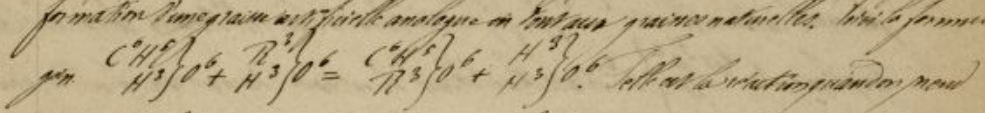 formation d'une graisse artificielle analogue en tout aux graisses naturelles. Voici la formule
gén. C⁶H⁵ H³}O⁶ + R³ H³}O⁶ = C⁶H⁵ R³}O⁶ + H³ H³}O⁶. Telle est la réaction quand on prend